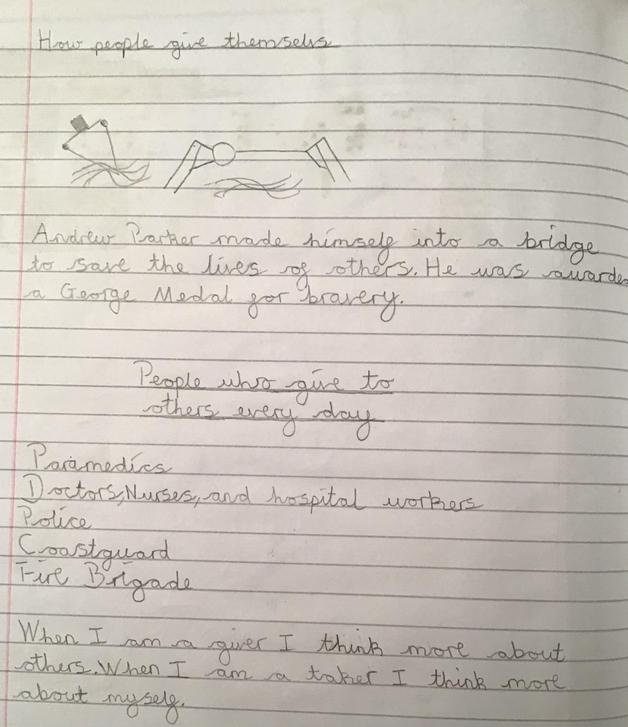 How people give themselvs
Andrew Parker made himself into a bridge
to save the lives of others. He was awarded
a George Medal for bravery.
People who give to
others every day
Paramedics
Doctors, Nurses, and hospital workers
Police
Coastguard
Fire Brigade
When I am a giver I think more about
others. When I am a taker I think more
about myself.